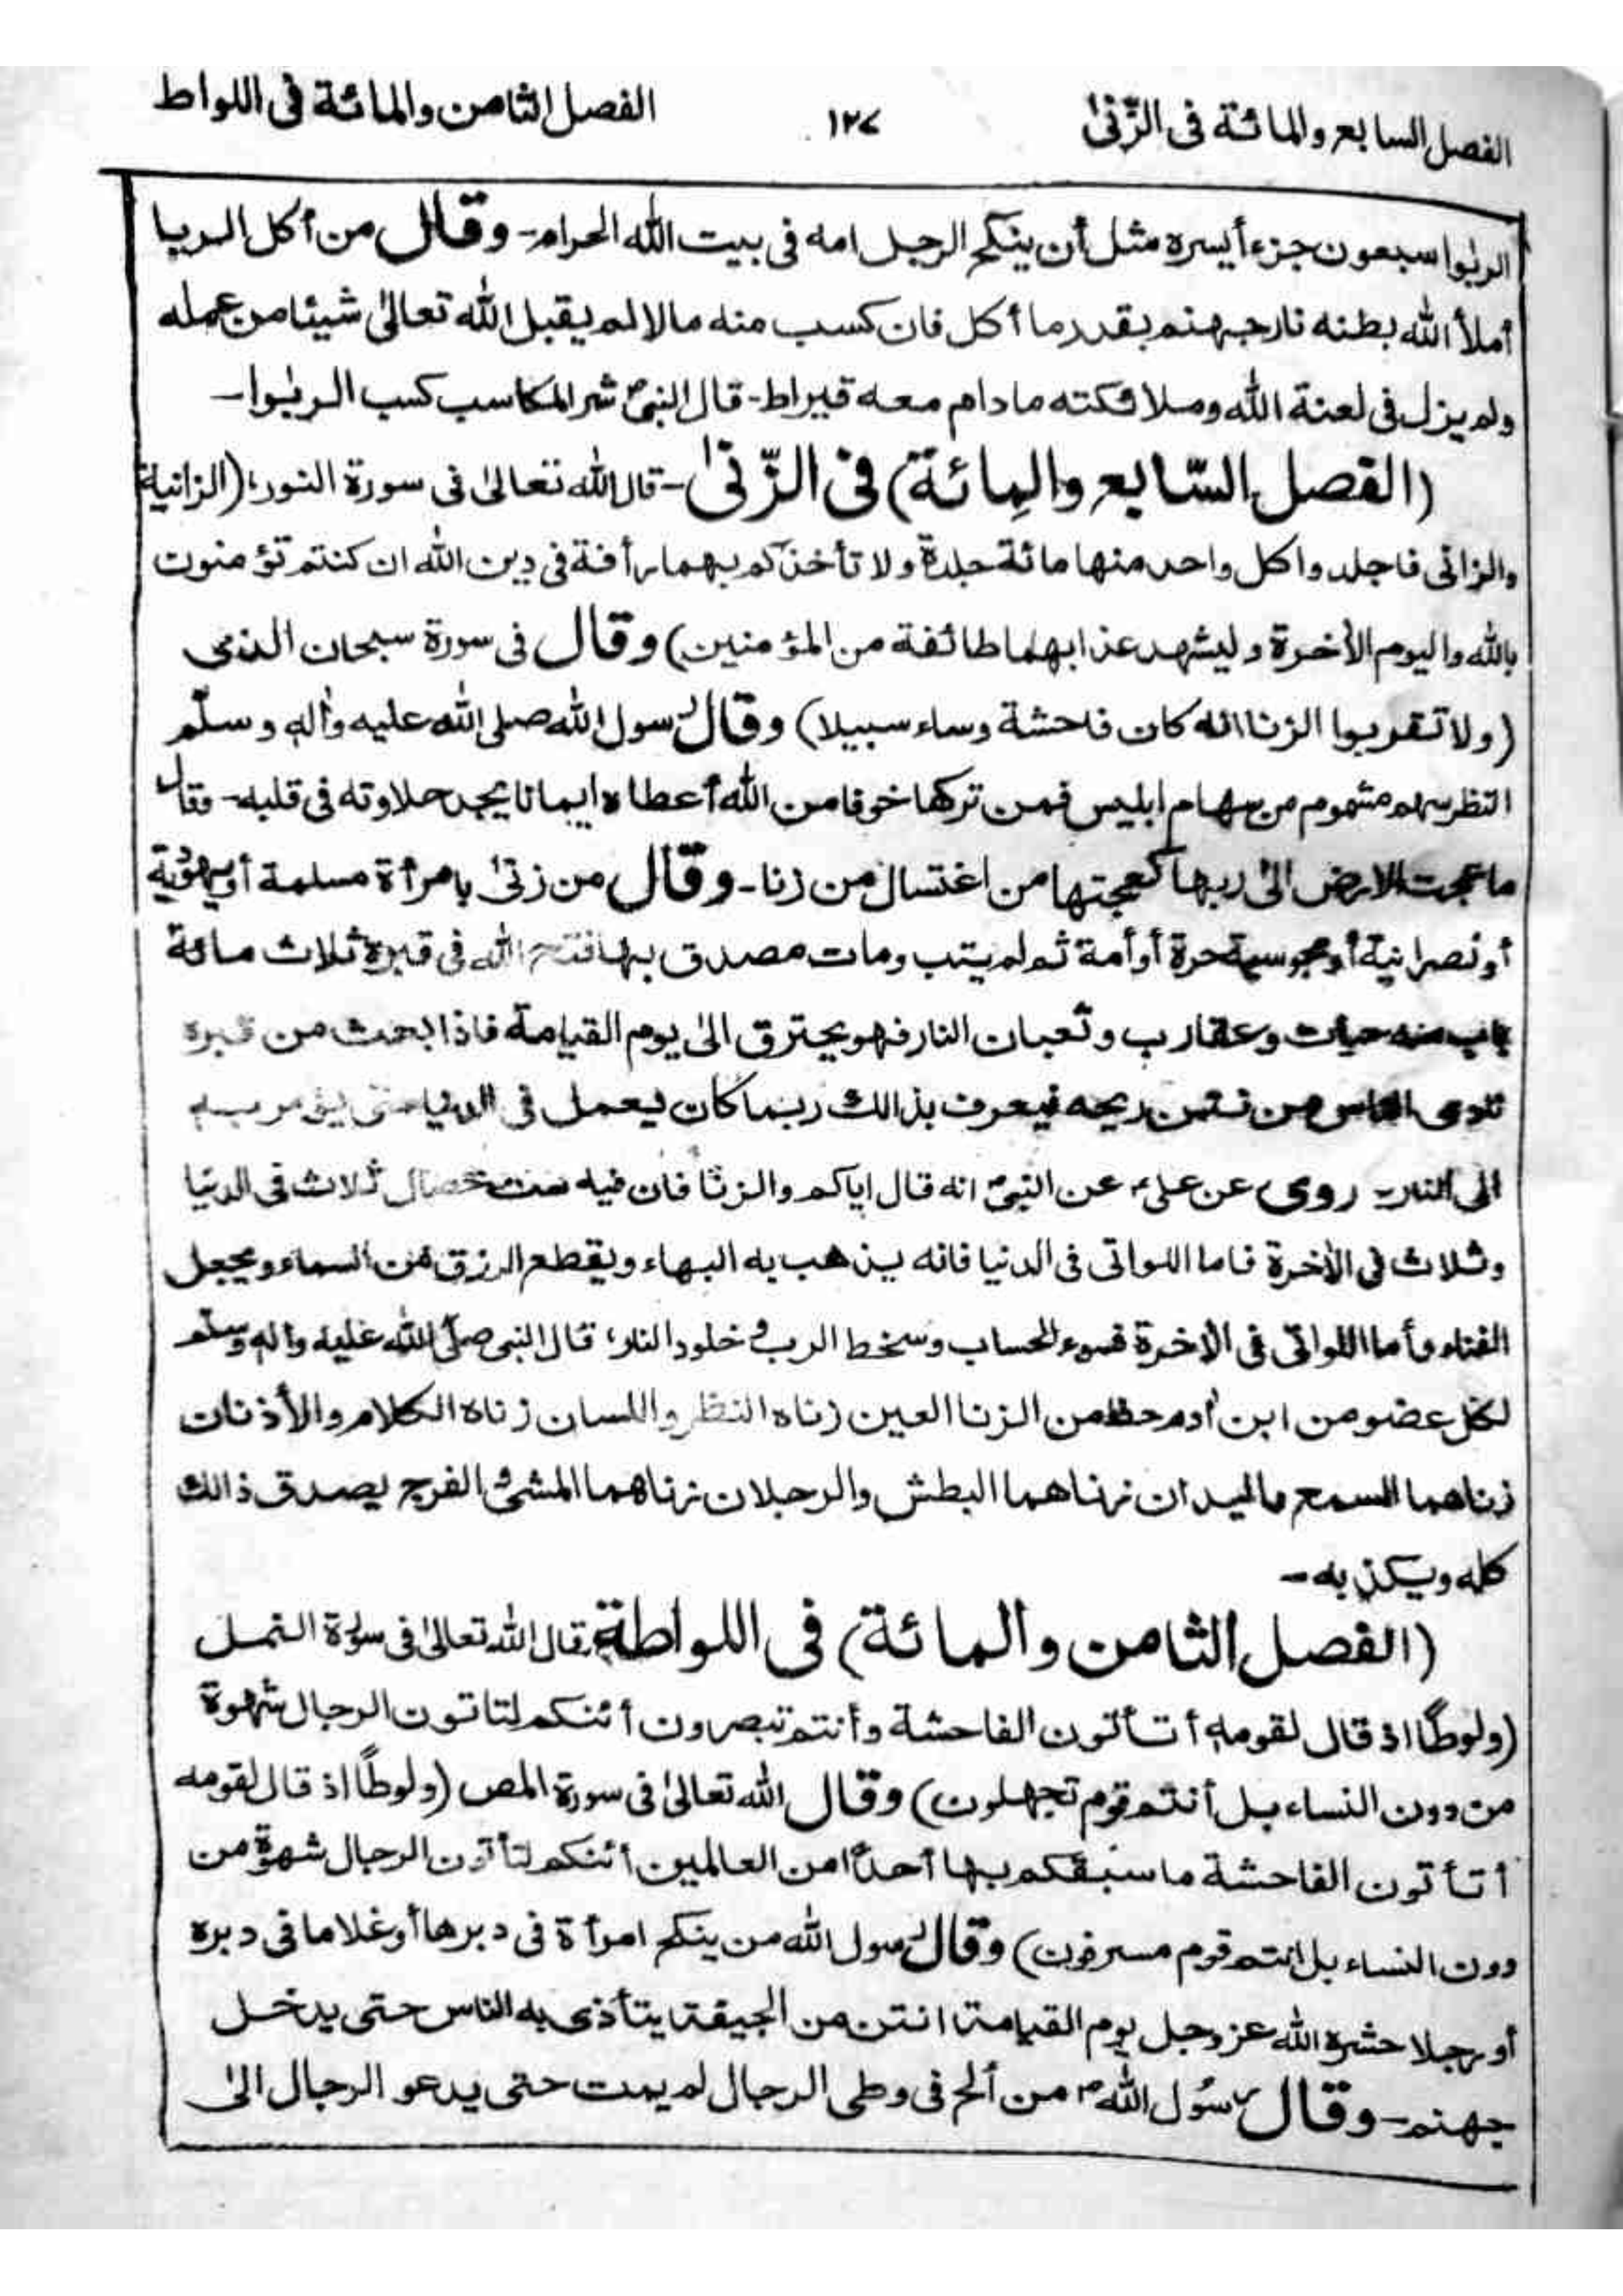 الفصل السابع والمائة فى الزّنىٰ
١٢٧
الفصل الثامن والمائة فى اللواط
الربٰوا سبعون جزءأيسره مثل أن ينكح الرجل امه فى بيت الله الحرام- وقال من أكل الربا
أملأ الله بطنه نار جهنم بقدر ما أكل فان كسب منه مالا لم يقبل الله تعالىٰ شيئا من عمله
ولم يزل فى لعنة الله وملائكته مادام معه قيراط- قال النبىؐ شر المكاسب كسب الربٰوا-
(الفصل السّابع والمِائة) فى الزّنىٰ- قال الله تعالىٰ فى سورة النور، (الزانية
والزانى فاجلدوا كل واحد منها مائة جلدة ولا تأخذكم بهما رأفة فى دين الله ان كنتم تؤمنون
بالله واليوم الأخرة وليشهد عذابهما طائفة من المؤمنين) وقال فى سورة سبحان الذى
(ولا تقربوا الزنا انه كان فاحشة وساء سبيلا) وقال رسول الله صلى الله عليه واٰله وسلّم
النظر سهم مشموم من سهام ابليس فمن تركها خوفا من الله أعطاه ايمانا يجد حلاوته فى قلبه- وقال
ما عجت الارض الىٰ ربها كعجتها من اغتسال من زنا- وقال من زنىٰ بامرأة مسلمة أو يهوديّة
أو نصرانية أو مجوسية حرة أو أمة ثم لم يتب ومات مصدق بها فتح الله فى قبره ثلاث مائة
باب منه حيات وعقارب وثعبان النار فهو يحترق الىٰ يوم القيامة فاذا بعث من قبره
تتوذى الناس من نتن ريحه فيعرف بذالك ربما كان يعمل فى الدنيا حتى يؤمر به
الى النار- روى عن علىؑ عن النبىؐ انه قال اياكم والزنا فان فيه ست خصال ثلاث فى الدنيا
وثلاث فى الأخرة فاما اللواتى فى الدنيا فانه يذهب به البهاء ويقطع الرزق من السماء ويعجل
الفناء وأما اللواتى فى الأخرة فسوء الحساب وسخط الرب و خلود النار، قال النبى صلى الله عليه واٰله وسلم
لكل عضو من ابن أدم حظ من الزنا العين زناه النظر واللسان زناه الكلام والأذنان
زناهما السمع واليدان زناهما البطش والرجلان زناهما المشئ الفرج يصدق ذالك
كله ويكذبه-
(الفصل الثامن والمائة) فى اللواطة، قال الله تعالىٰ فى سورة النمل
(ولوطًا اذ قال لقومه أتأتون الفاحشة وأنتم تبصرون أئنكم لتاتون الرجال شهوة
من دون النساء بل أنتم قوم تجهلون) وقال الله تعالىٰ فى سورة المص (ولوطًا اذ قال لقومه
أتأتون الفاحشة ما سبقكم بها أحدًا من العالمين أئنكم لتأتون الرجال شهوة من
دون النساء بل انتم قوم مسرفون) وقال رسول الله من ينكح امرأة فى دبرها أو غلاما فى دبره
أو رجلا حشره الله عز وجل يوم القيامة انتن من الجيفة يتأذى به الناس حتى يدخل
جهنم- وقال رسُول اللهؐ من ألح فى وطى الرجال لم يمت حتى يدعو الرجال الىٰ